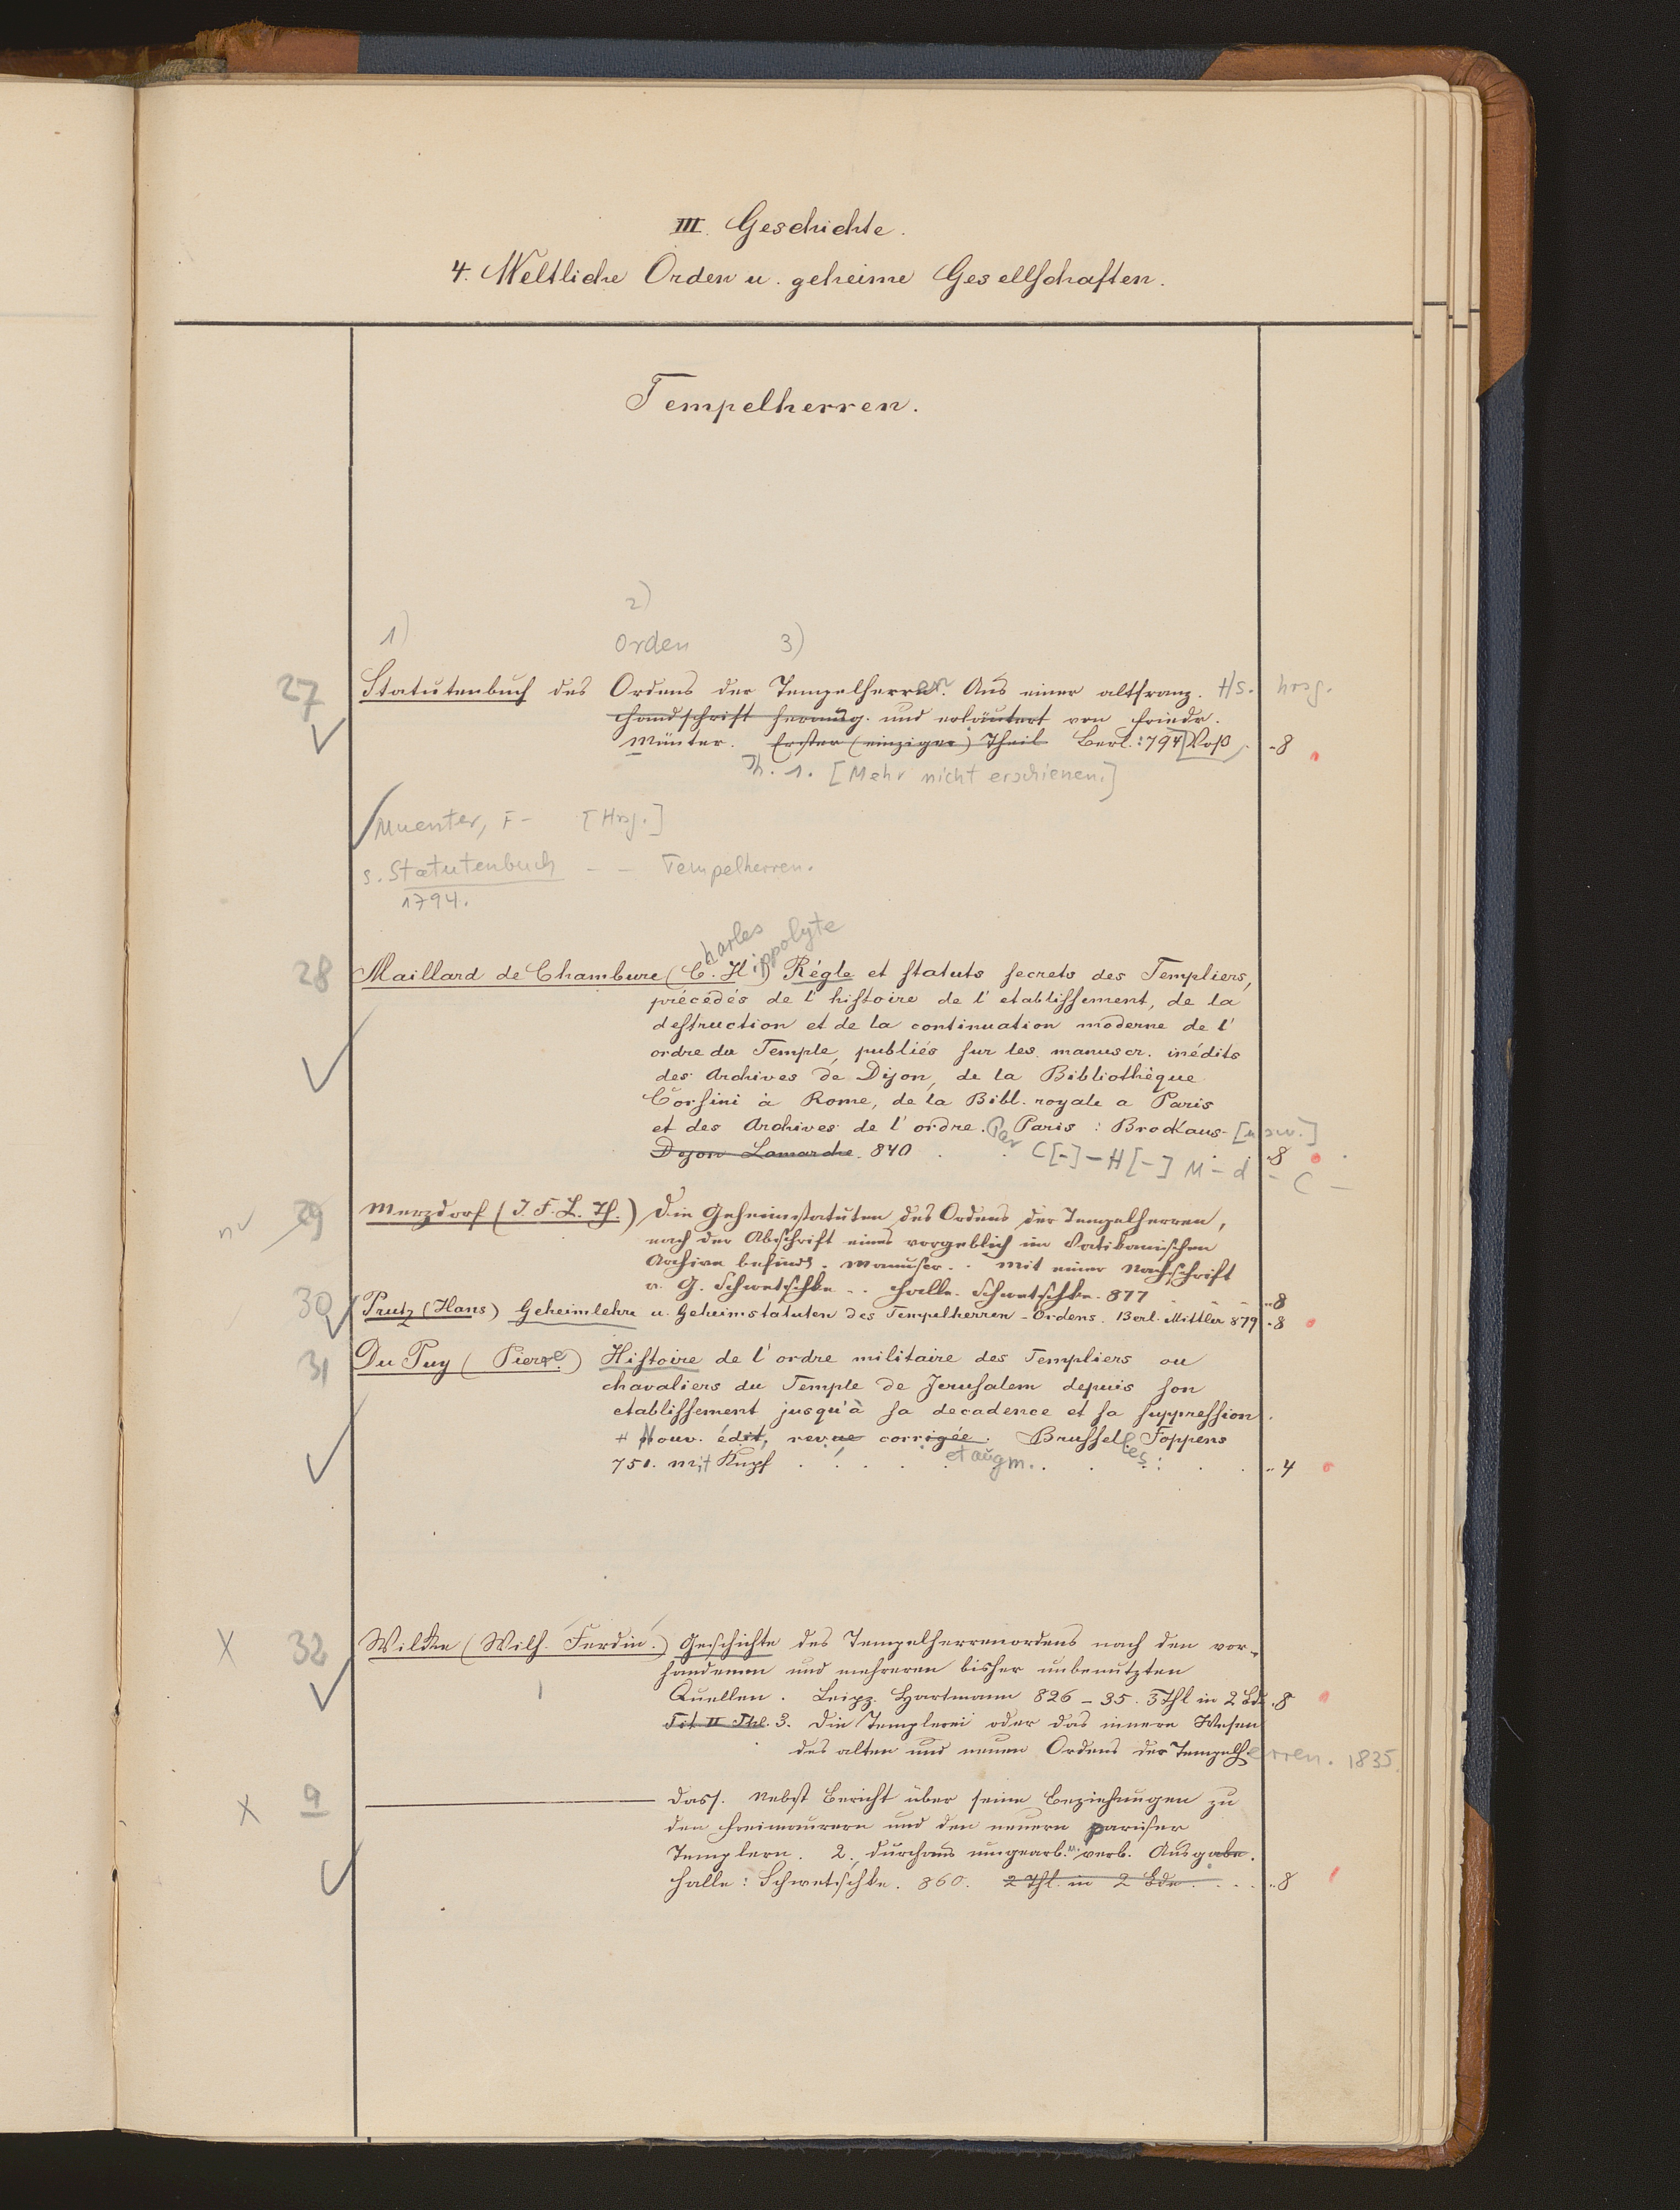 III. Geschichte.
4. Weltliche Orden u. geheime Gesellschaften.
Tempelherren.
2)
1) Orden 3)
27 Statutenbuch des Ordens der Tempelherren. Aus einer altfranz. Hs. hrsg.
Handschrift herausg. und erläutert von Friedr.
Münter. Erster (einziger) Theil Berl.: 794 Voß. 8
Th. 1. [Mehr nicht erschienen.]
Muenter, F- [Hrsg.]
s. Statutenbuch - - Tempelherren.
1794.
harles ippolyte
28 Maillard de Chambure (C. H.) Régle et statuts secrets des Templiers,
précédés de l'histoire de l'etablissement, de la
destruction et de la continuation moderne de l'
ordre du Temple, publiés sur les manuscr. inédits
des Archives de Dijon, de la Bibliothèque
Corsini à Rome, de la Bibl. royale a Paris
et des Archives de l'ordre. Par Paris : Brockaus- [usw.]
Dijon Lamarche. 840 . . C[-]-H[-] M-d-C- 8
nv 29 Merzdorf (J. F. L. Th.) Die Geheimstatuten des Ordens der Tempelherren,
nach der Abschrift eines vorgeblich im Vatikanischen
Archive befindl. Manuscr. . Mit einer Nachschrift
v. G. Schwetschke . . Halle. Schwetschke. 877 8
30 Prutz (Hans) Geheimlehre u. Geheimstatuten des Tempelherren-Ordens. Berl. Mittler 879 8
31 Du Puy (Pierre) Histoire de l'ordre militaire des Templiers ou
chavaliers du Temple de Jerusalem depuis son
etablissement jusqu'à sa decadence et sa suppression.
+ Nouv. édit, revue corrigée. Brussell. Foppens
751. mit Kupf . . . et augm. . . les: . . 4
X 32 Wilcke (Wilh. Ferdin.) Geschichte des Tempelherrenordens nach den vor-
handenen und mehreren bisher unbenutzten
Quellen. Leipz. Hartmann 826-35. 3 Thl in 2 Bde. 8
Tit. II Thl. 3. Die Templerei oder das innere Wesen
des alten und neuen Ordens der Tempelherren. 1835.
X a ——— Dass. Nebst Bericht über seine Beziehungen zu
den Freimaurern und den neuern pariser
Templern. 2., durchaus umgearb. u. verb. Ausgabe.
Halle: Schwetschke. 860. 2 Thl. in 2 Bde. . . . 8